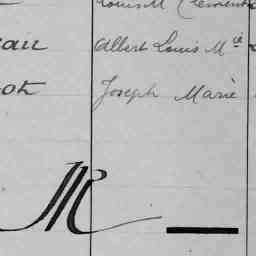 Louis M Clément
eau Albert Louis Mie
ot Joseph Marie
M